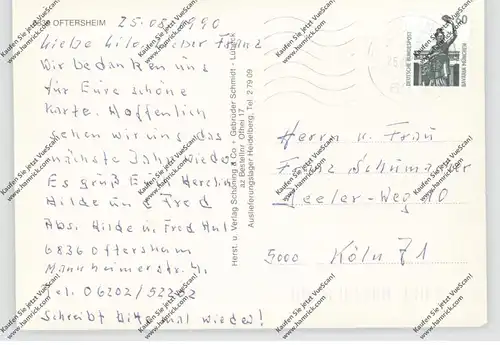 OFTERSHEIM 25.08.1990
Liebe Lilo, lieber Franz
Wir bedanken uns
für Eure schöne
Karte. Hoffentlich
sehen wir uns das
nächste Jahr wieder
Es grüß Euch Herzlich
Hilde u Fred
Abs. Hilde u. Fred
6836 Oftersheim
Mannheimerstr.
Tel. 06202/
Schreibt bitte mal wieder!
Herst. u. Verlag Schöning & Co + Gebrüder Schmidt - Lübeck
az Bestellnr. Ofhei 17
Auslieferungslager Heidelberg, Tel. 2 79 09
DEUTSCHE BUNDESPOST
BAVARIA MÜNCHEN
Herrn u. Frau
Franz Schumacher
Weg 10
5000 Köln 71
Kaufen Sie jetzt VueScan!
www.hamrick.com